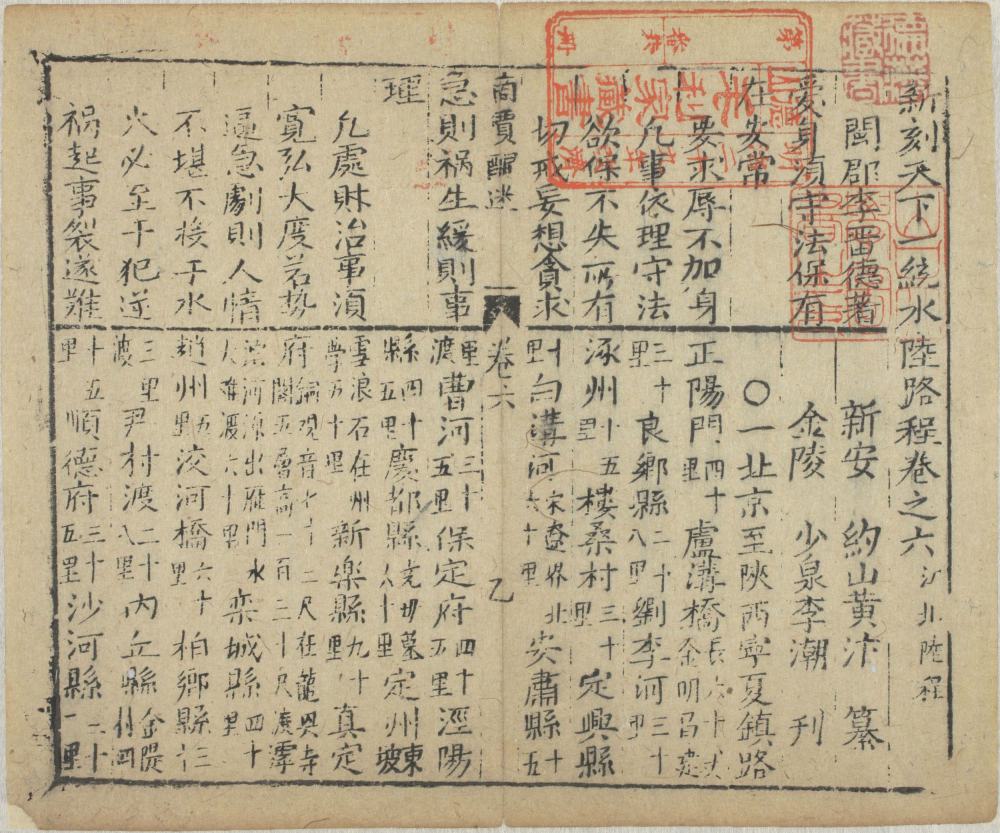 新刻天下一統水陸路程卷之六 江北陸程
閩郡李晋德著
新安 約山黃汴 纂
愛身須守法保有
金陵 少泉李潮 刊
在安常
〇一北京至陝西寧夏鎮路
要求辱不加身
正陽門四十里盧溝橋長六十丈金明昌建
凡事依理守法
三十里良鄉縣二十八里劉李河三十里
欲保不失所有
涿州十五里樓桑村三十里定興縣
切戒妄想貪求
卅里白溝河宋遼界北六十里安肅縣十五
商賈醒迷
卷六 乙
急則禍生緩則事
里渡曹河三十五里保定府四十五里涇陽
理
縣四十五里慶都縣堯母墓六十里定州東坡
凡處財治事須
雪浪石在州學五十里新樂縣九十里真定
寬弘大度若勢
府銅觀音七十二尺在龍興寺閣五層高一百三十尺渡滹
逼急劇則人情
沱河源出雁門水大难渡六十里栾城縣四十里
不堪不接于水
趙州五里洨河橋六十里柏鄉縣三
火必至于犯逆
三里渡尹村渡二十八里內丘縣金隄
禍起事裂遂難
十五里順德府三十五里沙河縣二十一里